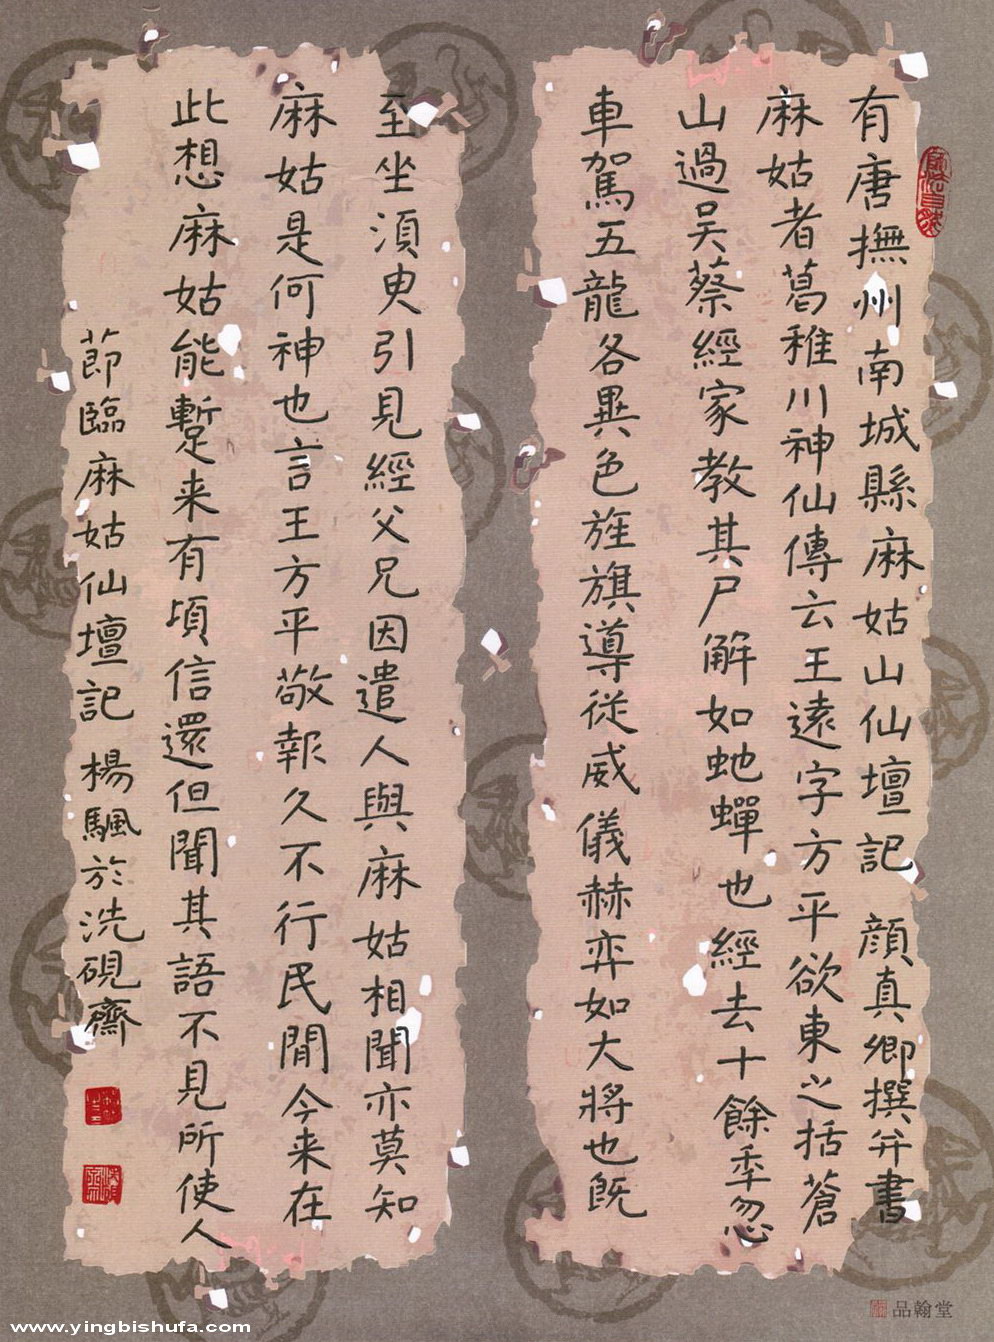 有唐撫州南城縣麻姑山仙壇記 顔真卿撰并書
麻姑者葛稚川神仙傳云王遠字方平欲東之括蒼
山過吴蔡經家教其尸解如虵蟬也經去十餘季忽
車駕五龍各異色旌旗導從威儀赫弈如大將也既
至坐須臾引見經父兄因遣人與麻姑相聞亦莫知
麻姑是何神也言王方平敬報久不行民間今来在
此想麻姑能暫来有頃信還但聞其語不見所使人
莭臨麻姑仙壇記 楊颿於洗硯齋
品翰堂
www.yingbishufa.com